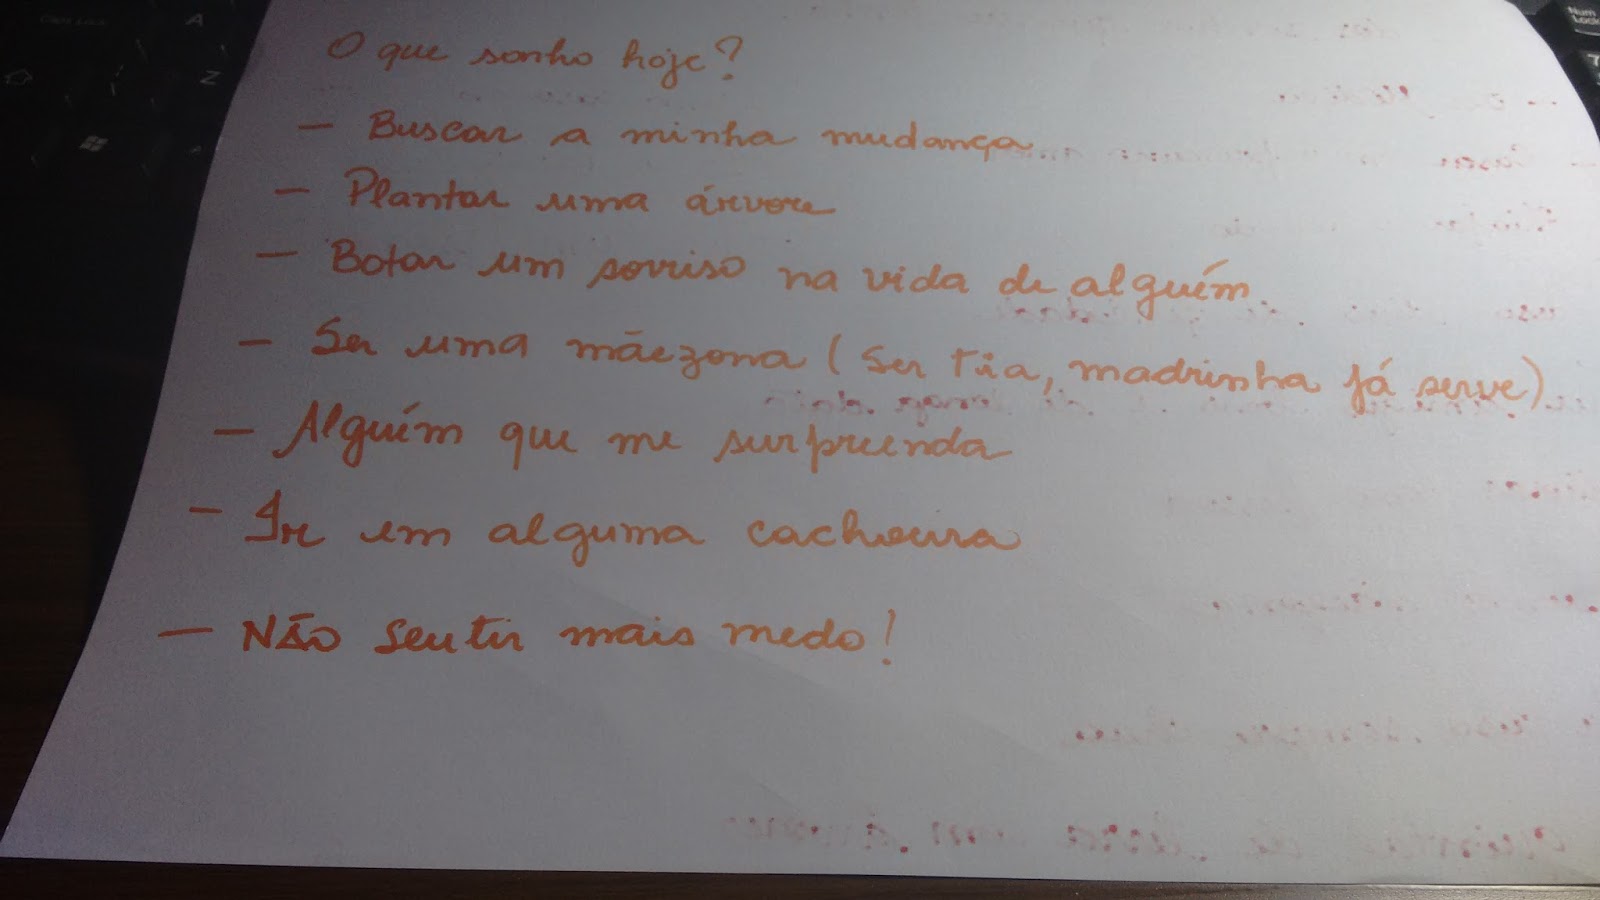 O que sonho hoje?
— Buscar a minha mudança
— Plantar uma árvore
— Botar um sorriso na vida de alguém
— Ser uma mãezona (ser tia, madrinha já serve)
— Alguém que me surpreenda
— Ir em alguma cachoeira
— Não sentir mais medo!